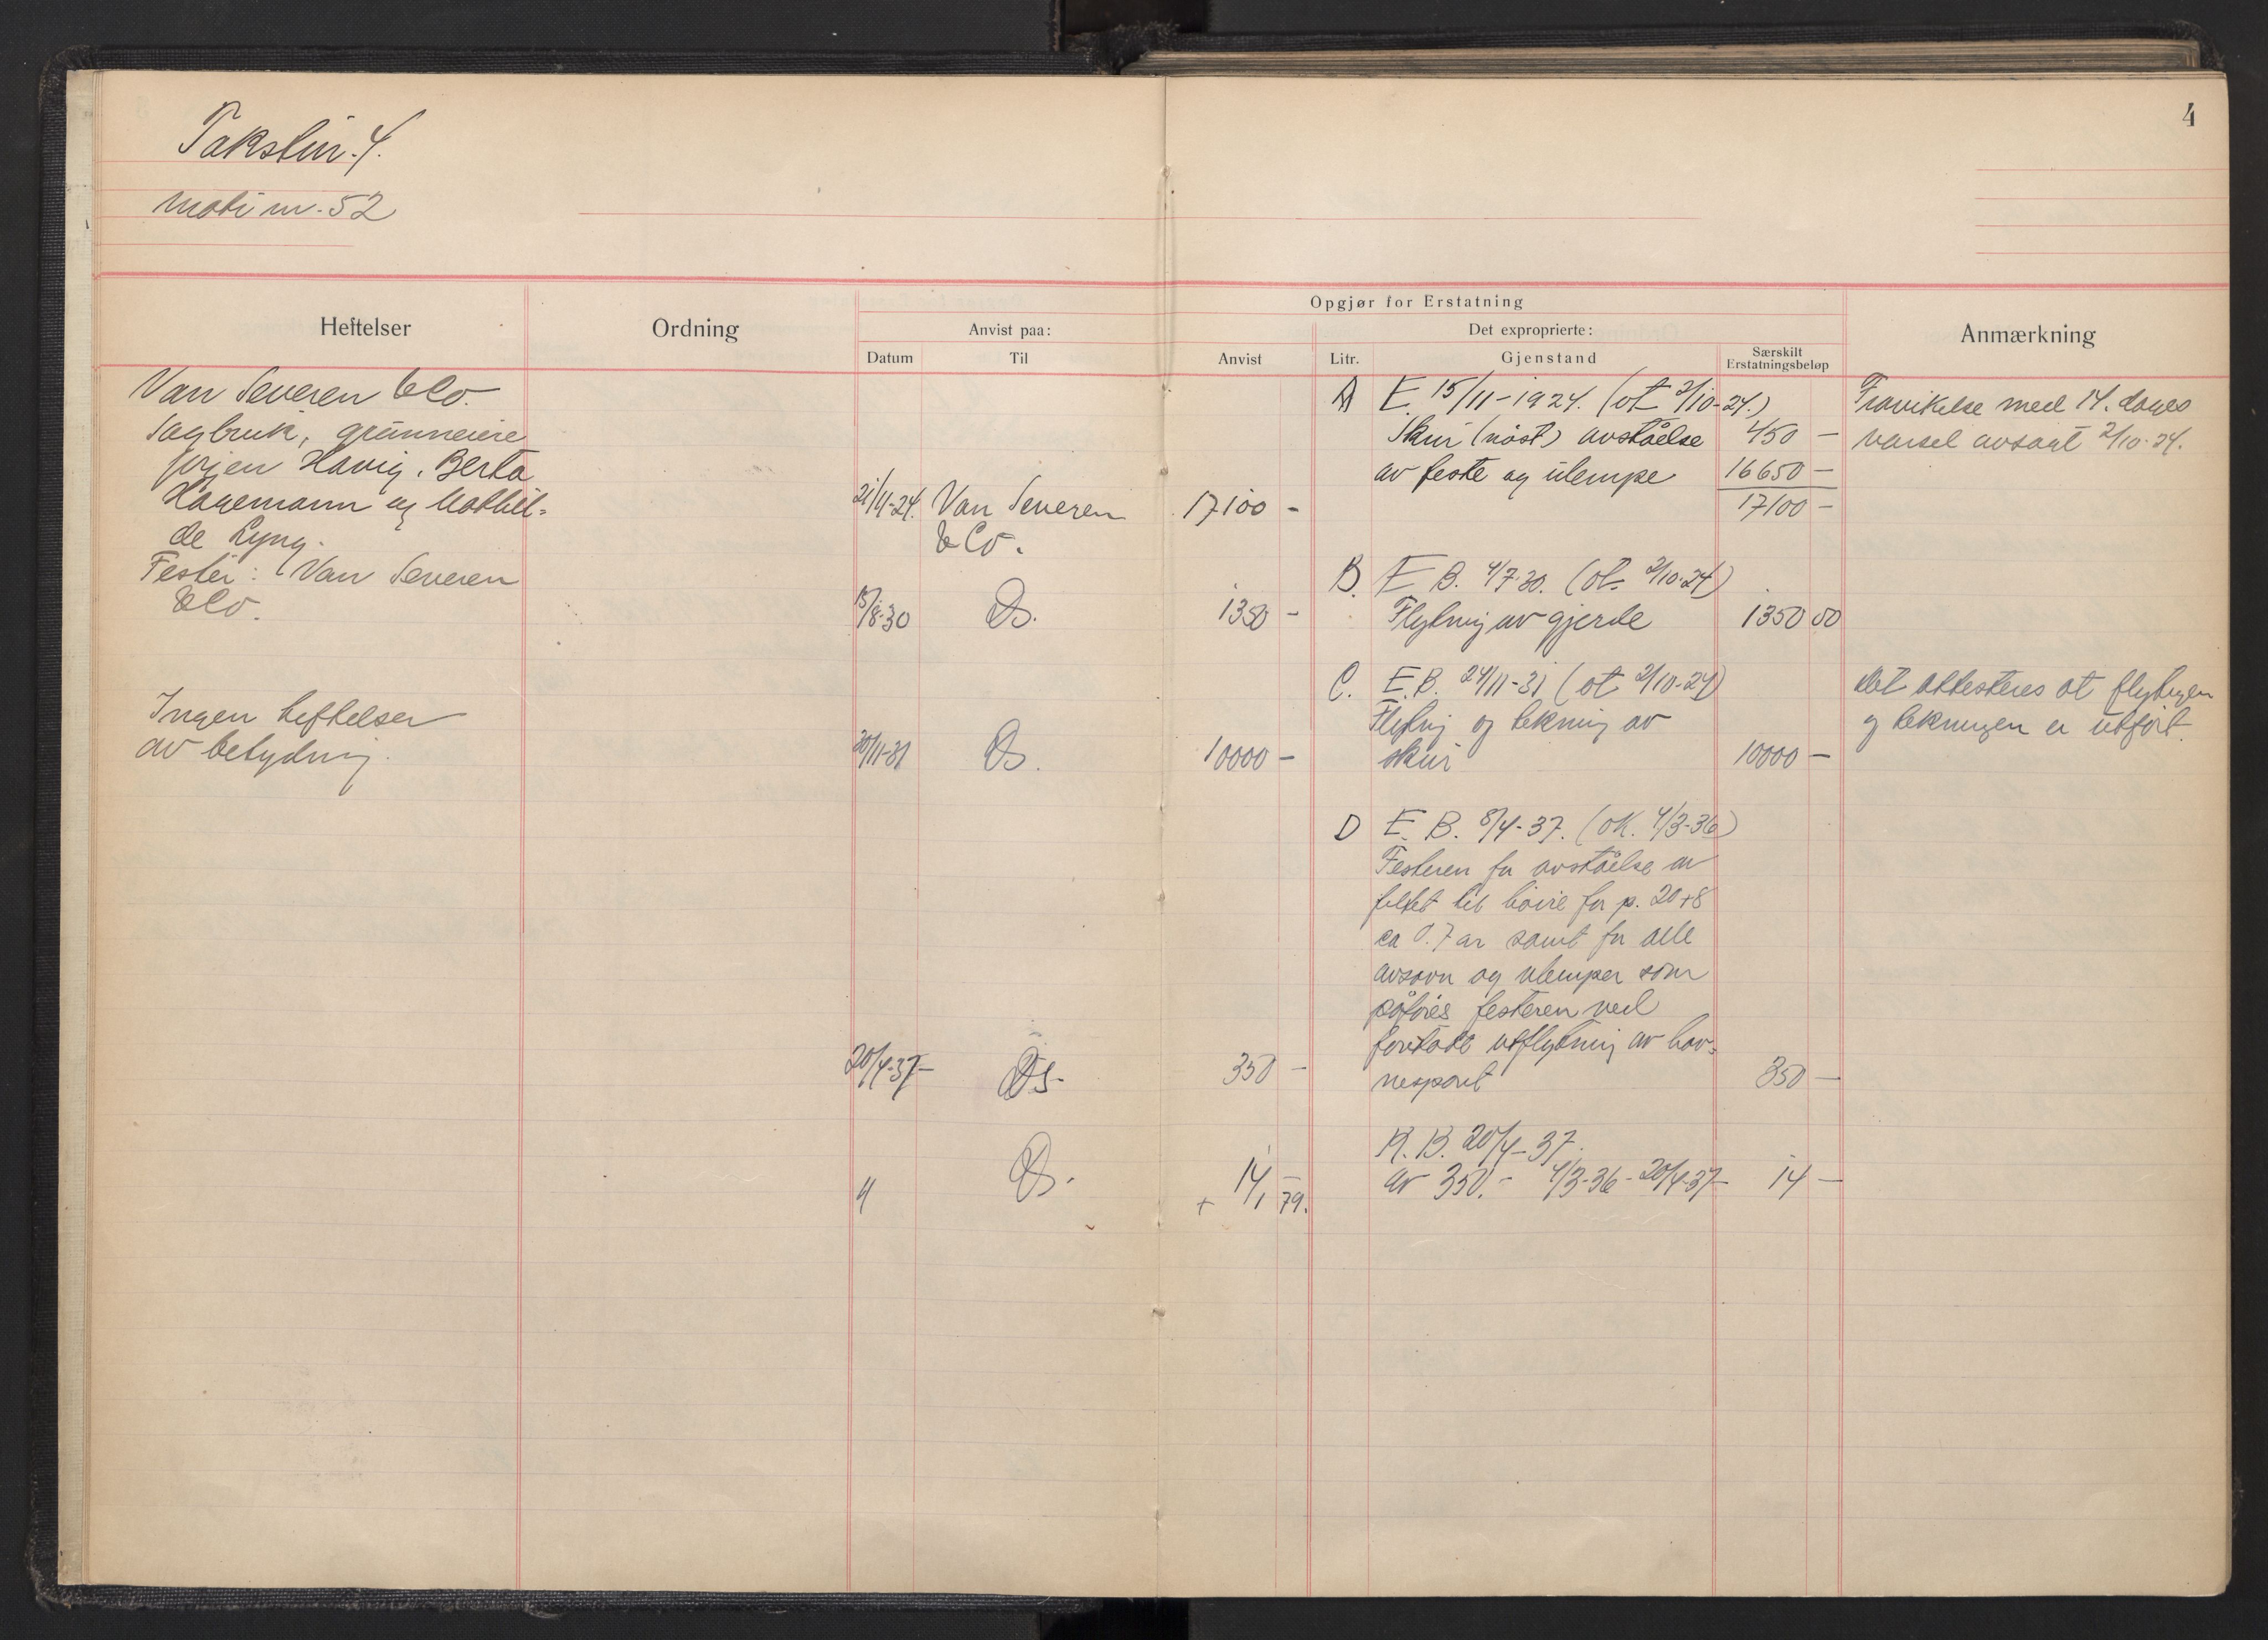 4
Takstnr. 4.
moti nr. 52
Opgjør for Erstatning
Heftelser Ordning Anvist paa: Det exproprierte: Anmærkning
Datum Til Anvist Litr. Gjenstand Særskilt Erstatningsbeløp
Van Severen & Co.
Sagbruk, grunneiere
Jørjen Havig, Berta
Hagemann og Mathil-
de Lyng.
Fester: Van Severen
& Co.
Ingen heftelser
av betydning.
21/11-24. Van Severen 17100 -
& Co.
15/8-30 Ds. 1350 -
30/11-31 Ds. 10000 -
20/4-37- Ds. 350 -
" Ds. 14 -
+ 1 79.
A E. 15/11-1924. (ot 2/10-24.)
Skur (nøst) avståelse 450 -
av feste og ulempe 16650 -
17100 -
B. E B. 4/7-30. (ot. 2/10-24)
Flytning av gjerde 1350 00
C. E.B. 24/11-31 (ot 2/10-24)
Flytning og tekning av
skur 10000 -
D E. B. 8/4-37. (OK. 4/3-36)
Festeren for avståelse av
feltet til høire for p. 20+8
ca 0.7 ar samt for alle
avsavn og ulemper som
påføres festeren ved
foretatt utflytning av hav-
nesporet 350 -
R. B. 20/4-37.
av 350.- 4/3-36 - 20/4-37- 14 -
Fravikelse med 14. dages
varsel avsagt 2/10-24.
Det attesteres at flytningen
og tekningen er utført.